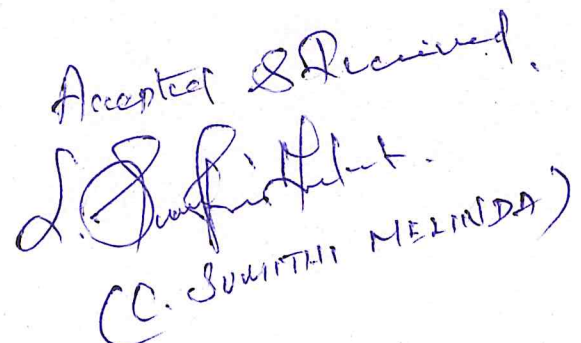 Accepted & Received.
(C. SUMITHI MELINDA)